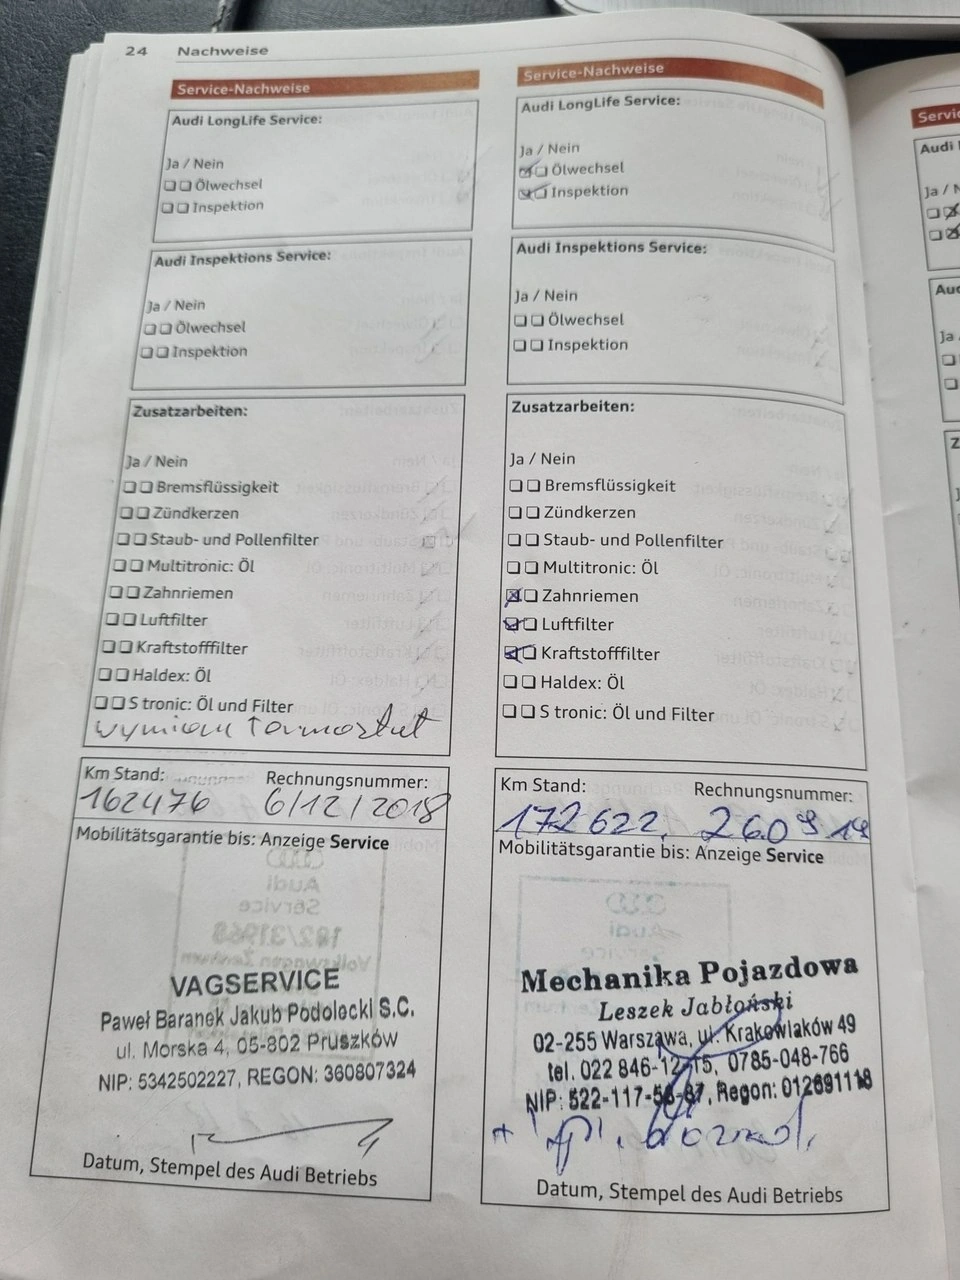 24 Nachweise
Service-Nachweise
Audi LongLife Service:
Ja / Nein
Ölwechsel
Inspektion
Audi Inspektions Service:
Ja / Nein
Ölwechsel
Inspektion
Zusatzarbeiten:
Ja / Nein
Bremsflüssigkeit
Zündkerzen
Staub- und Pollenfilter
Multitronic: Öl
Zahnriemen
Luftfilter
Kraftstofffilter
Haldex: Öl
S tronic: Öl und Filter
Km Stand: Rechnungsnummer:
162476 6/12/2018
Mobilitätsgarantie bis: Anzeige Service
VAGSERVICE
Paweł Baranek Jakub Podolecki S.C.
ul. Morska 4, 05-802 Pruszków
NIP: 5342502227, REGON: 360807324
Datum, Stempel des Audi Betriebs
Service-Nachweise
Audi LongLife Service:
Ja / Nein
Ölwechsel
Inspektion
Audi Inspektions Service:
Ja / Nein
Ölwechsel
Inspektion
Zusatzarbeiten:
Ja / Nein
Bremsflüssigkeit
Zündkerzen
Staub- und Pollenfilter
Multitronic: Öl
Zahnriemen
Luftfilter
Kraftstofffilter
Haldex: Öl
S tronic: Öl und Filter
Km Stand: Rechnungsnummer:
172622
Mobilitätsgarantie bis: Anzeige Service
Mechanika Pojazdowa
Leszek Jabłoński
02-255 Warszawa, ul. Krakowiaków 49
tel. 022 846-12-15, 0785-048-766
Regon: 012691118
Datum, Stempel des Audi Betriebs